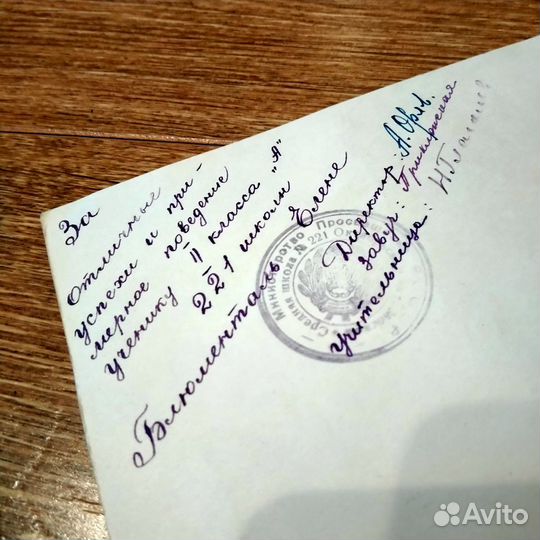 За
отличные
успехи и при-
мерное поведение
ученику II класса "А"
221 школы
Блюменталь Елене
Директор: А. Орлв.
Завуч:
учительница:
Министерство Просв
Средняя школа № 221 Ок
Avito